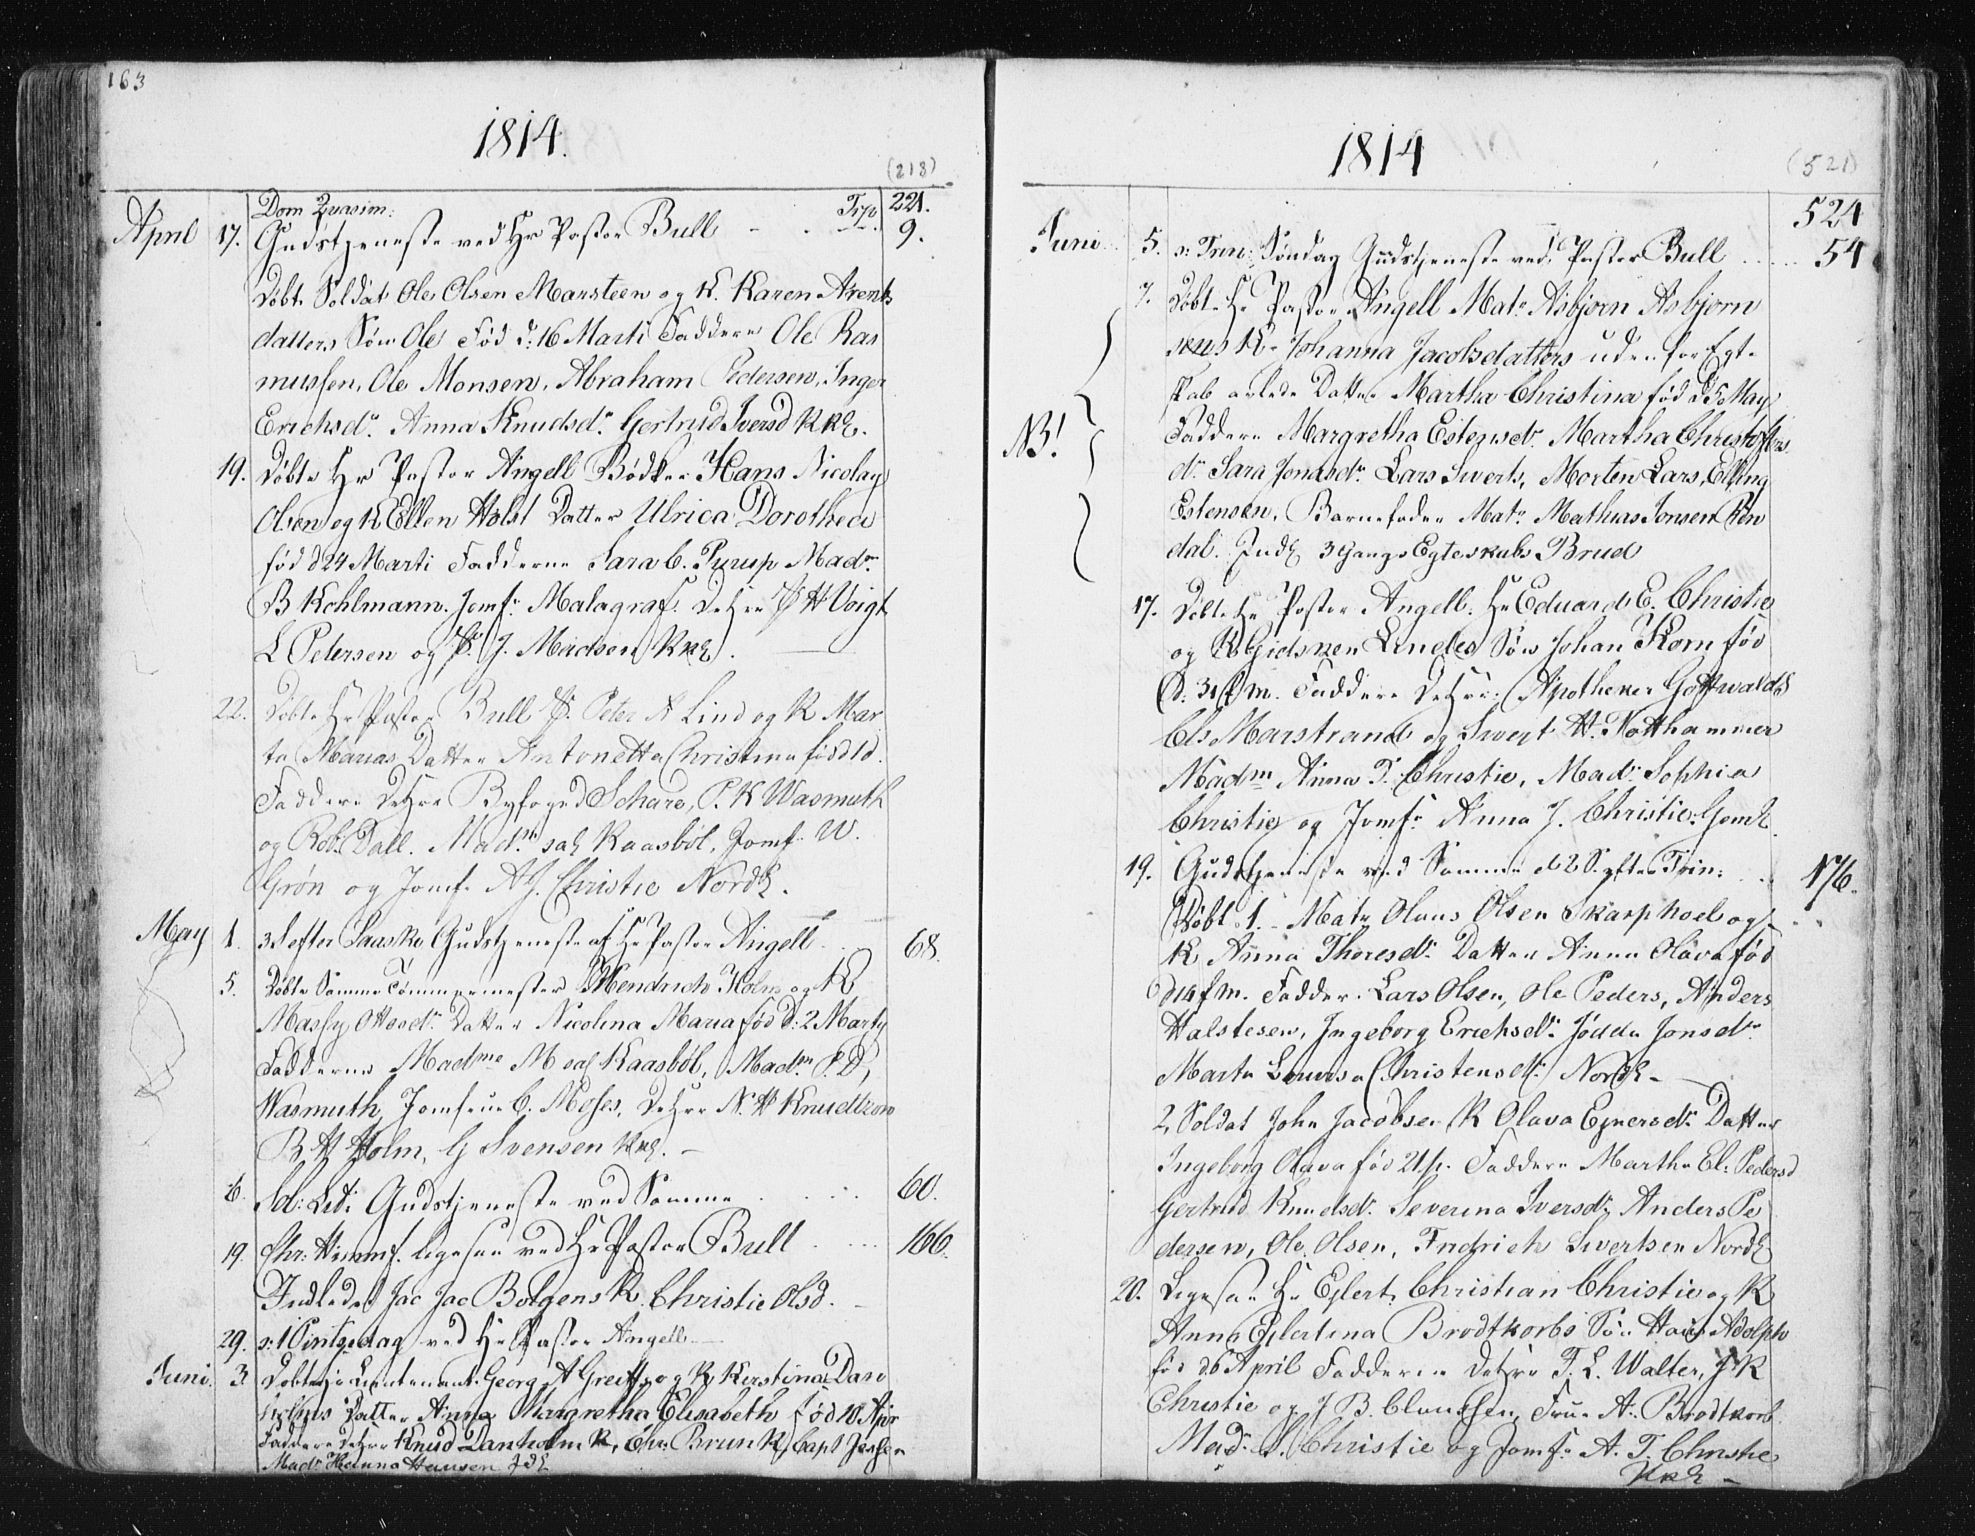 163
1814.
(218)
Dom Quasim: Trp 221.
April 17. Gudstjeneste ved Hr Pastor Bull - . 9.
Døbt Soldat Ole Olsen Marsteen og K. Karen Arents
datters Søn Ole Fød d: 16 Marti Faddere Ole Ras
mussen, Ole Monsen, Abraham Pedersen, Inger
Erichsdr. Anna Knudsdr. Gertrud Iversd
19. Døbte Hr Pastor Angell Bødker Hans Nicolay
Olsen og K Ellen Holst Datter Ulrica Dorothea
fød d 24 Marti Fadderne Sara C. Pyrup Madm
B Kohlmann. Jomfr Malagraf. De Hrr H Voigt
L Petersen og J. Madsen
22. Døbte Hr Pastor Bull Peter A Lind og K Mar
ta Marias Datter Antonetta Christina fød
Faddere De Hrr Byfoged Schare, P. K Wasmuth
og Rob. Dall. Madm Kaasbøl, Jomf. W.
Grøn og Jomfr A J. Christie Nordl.
May 1. 3 S efter Paaske Gudstjeneste af Hr Pastor Angell 68.
5. Døbte Samme Tømmermester Hendrich Holm og K
Massy Ottosdr Datter Nicolina Maria fød d: 2 Marty
Fadderne Madme M Kaasbøl, Madm P. D,
Wasmuth, Jomfrue C. Moses, De Hrr N. H Knudtzon
B H Holm, G Svensen
6. Gudstjeneste ved Samme 60.
19. Chr: Himmf. ligesaa ved Hr Pastor Bull 166.
Indledet Jac Jac Bolgens K. Christie Olsd.
29. 1 Pintsedag ved Hr Pastor Angell
Juni. 3 Døbte Lieutenant Georg A Greiff og K Kerstina Dan
Datter Anna Margretha Elisabeth Fød 10 Apr
Faddere De Hrr Knud Danholm K, Chr. Brun K, Capt Jessen
Madm Hanna Hansen
1814
(521)
524
Juni 5. Trin: Søndag Gudstjeneste ved Pastor Bull 54
7. Døbt Hr Pastor Angell Matr Asbjorn Asbjorn
sens K. Johanna Jacobsdatters uden for Egte
skab avlede Datter Martha Christina fød d 5 May
NB! Faddere Margretha Estensdr. Martha Christophers
dr Sara Jonasdr. Lars Sverts, Morten Lars, Elling
Estensen, Barnefader Matr Mathias Jonsen Ren
dal. Indl 3 Gange Egteskabs Brud
17. Døbte Hr Pastor Angell. Hr Eduard E. Christie
og K Gidsken Lindes Søn Johan Korn fød
d. 31 f m. Faddere De Hrr: Apotheker Gottwaldt
Cls Marstrand og Swert H. Notthammer
Madm Anna T. Christie, Mad. Sophia
Christie og Jomfr Anna J. Christie.
19. Gudstjeneste ved Samme d 2 S. efter Trin: 176.
Døbt 1. Matr Olaus Olsen Skarphoel og
K Anna Thoresdr Datter Anna Olava fød
d 14 f m. Fadder. Lars Olsen, Ole Peders, Anders
Halstesen, Ingeborg Erichsdr Jødda Jonsdr
Marta Lovisa Christensdr. Nordl -
2, Soldat John Jacobsen K Olava Ejnersdr Datter
Ingeborg Olava fød 21 . Faddere Martha El. Pedersd
Gertrud Knudsdr. Severina Iversdr Anders Pe
dersen, Ole Olsen, Fridrich Swertsen Nordl
20. Ligesaa Hr Ejlert Christian Christie og K
Anna Ejlertina Brodtkorbs Søn Hans Adolph
fød d 6 April Fadderne De Hrr T. L. Walter, J K
Christie og J B. Claussen, Frue A. Brodtkorb
Mad. Christie og Jomfr A. T. Christie